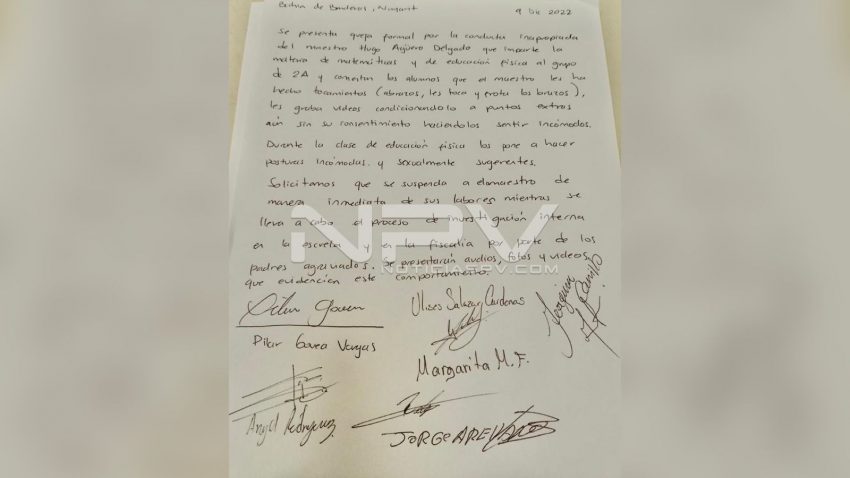 Bahía de Banderas, Nayarit 9 Dic 2022
Se presenta queja formal por la conducta inapropiada
del maestro Hugo Agüero Delgado que imparte la
materia de matemáticas y de educación física al grupo
de 2A y comentan los alumnos que el maestro les ha
hecho tocamientos (abrazos, les toca y frota los brazos),
les graba videos condicionandolo a puntos extras
aún sin su consentimiento haciendolos sentir incómodos.
Durante la clase de educación física los pone a hacer
posturas incómodas y sexualmente sugerentes.
Solicitamos que se suspenda a elamaestro de
manera inmediata de sus labores mientras se
lleva a cabo el proceso de investigación interna
en la escuela y en la fiscalía por parte de los
padres agraviados. Se presentarán audios, fotos y videos
que evidencien este comportamiento.
NPV
NOTICIASPV.COM
Ulises Salazar Cardenas
Pilar Govea Vargas
Margarita M. F.
Angel Rodriguez
JORGE AREVALO